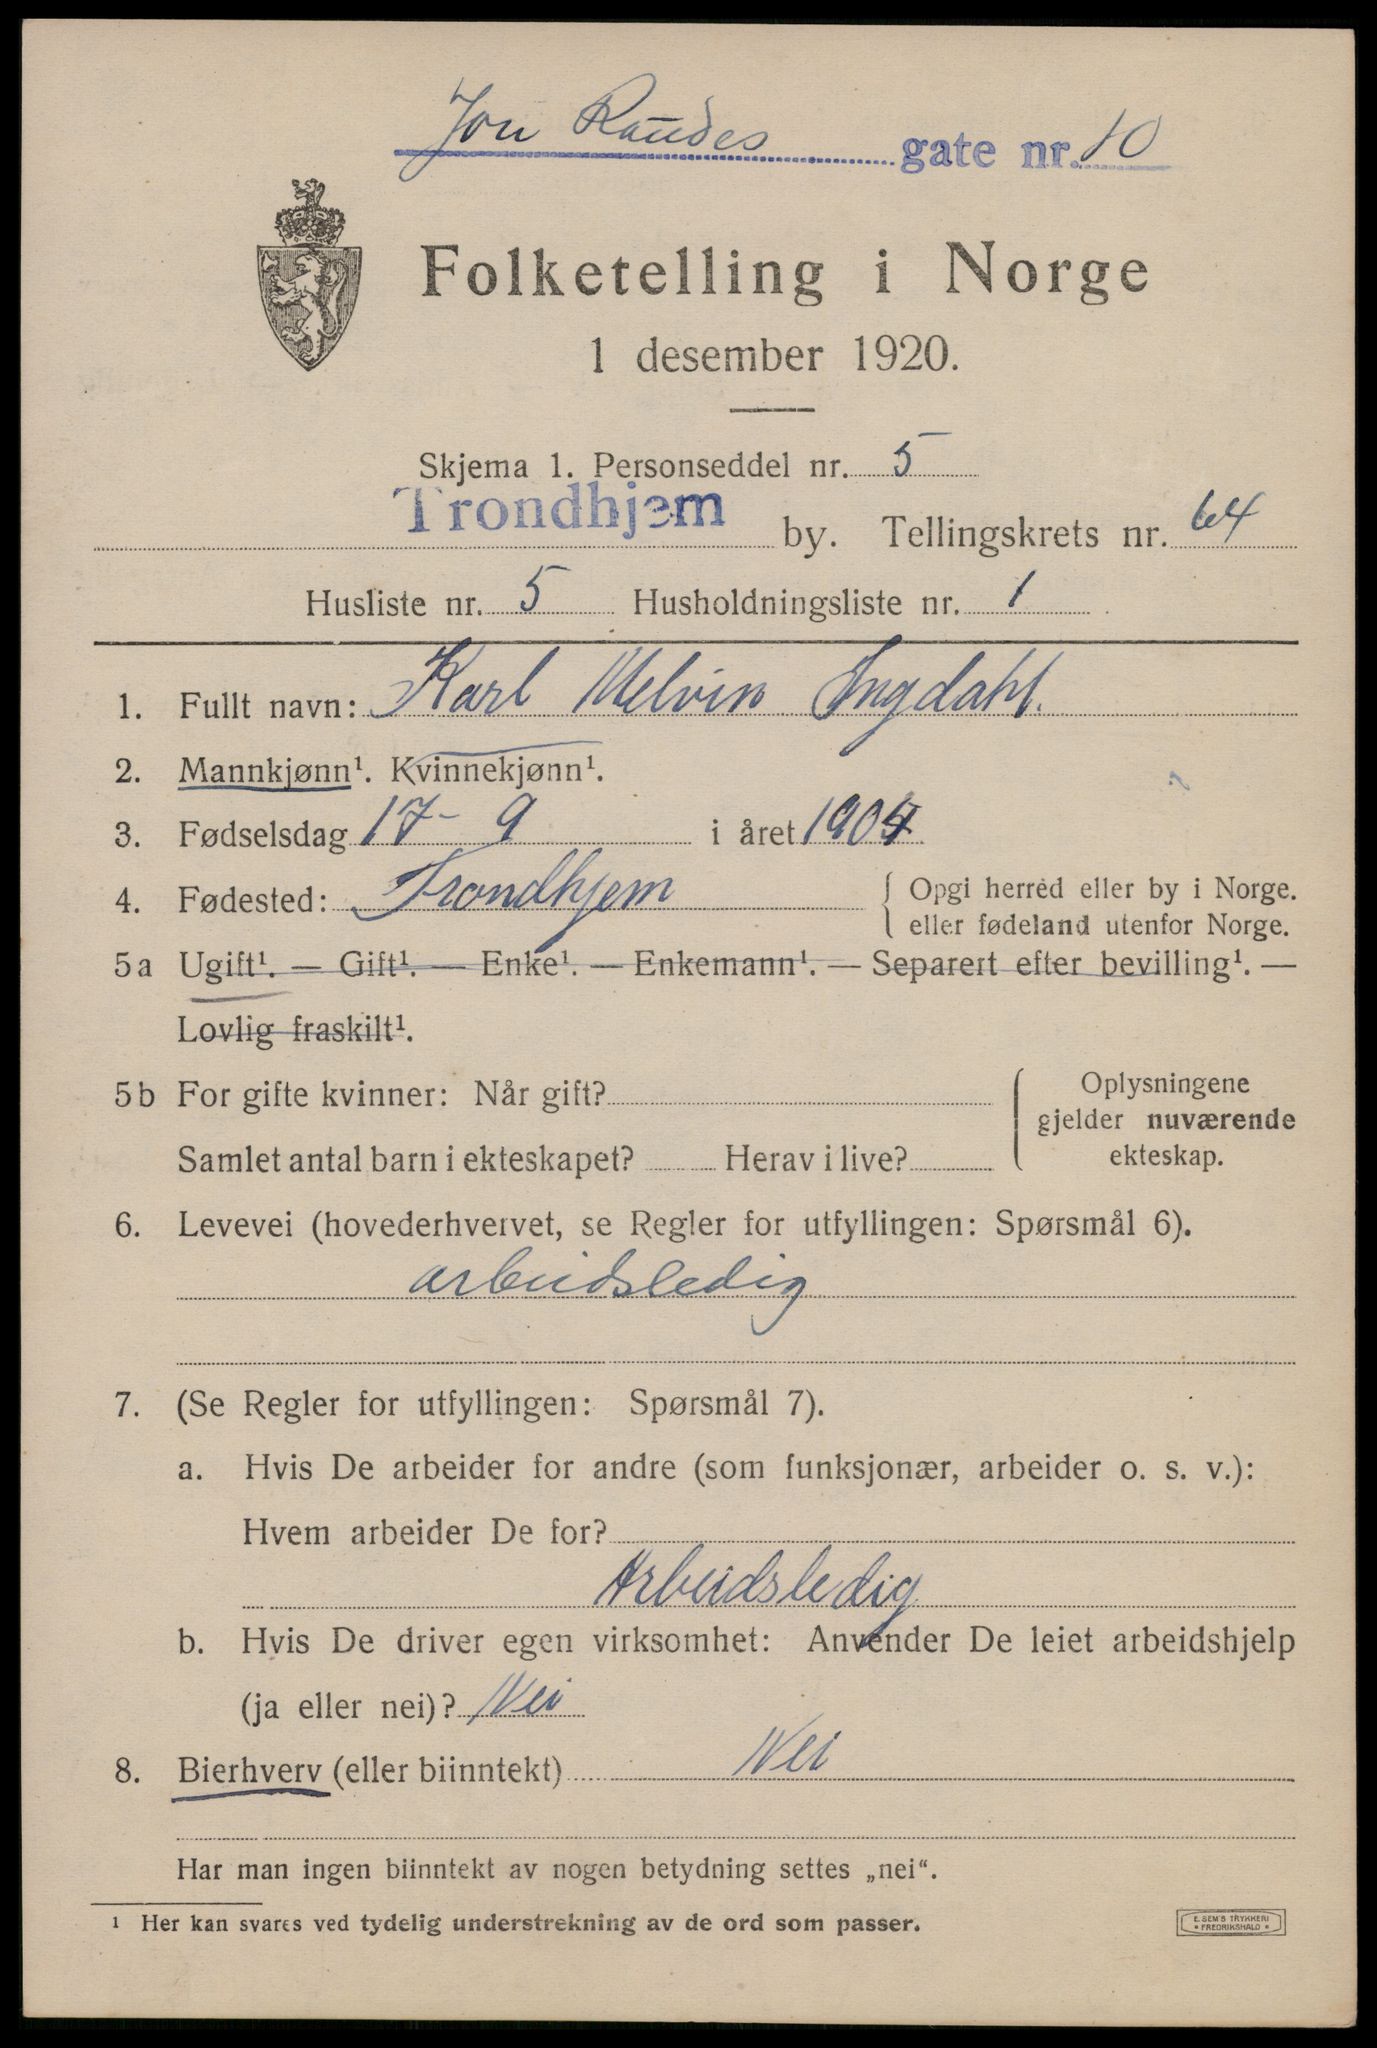 Jon Raudes gate nr. 10
Folketelling i Norge
1 desember 1920.
Skjema 1. Personseddel nr. 5
Trondhjem by. Tellingskrets nr. 64
Husliste nr. 5 Husholdningsliste nr. 1
1. Fullt navn: Karl Melvin Ingdahl.
2. Mannkjønn¹. Kvinnekjønn¹.
3. Fødselsdag 17-9 i året 1904
4. Fødested: Trondhjem { Opgi herred eller by i Norge.
eller fødeland utenfor Norge.
5a Ugift¹. — Gift¹. — Enke¹. — Enkemann¹. — Separert efter bevilling¹. —
Lovlig fraskilt¹.
5b For gifte kvinner: Når gift? { Oplysningene
gjelder nuværende
Samlet antal barn i ekteskapet? Herav i live? ekteskap.
6. Levevei (hovederhvervet, se Regler for utfyllingen: Spørsmål 6).
arbeidsledig
7. (Se Regler for utfyllingen: Spørsmål 7).
a. Hvis De arbeider for andre (som funksjonær, arbeider o. s. v.):
Hvem arbeider De for?
Arbeidsledig
b. Hvis De driver egen virksomhet: Anvender De leiet arbeidshjelp
(ja eller nei)? Nei
8. Bierhverv (eller biinntekt) Nei
Har man ingen biinntekt av nogen betydning settes „nei“.
¹ Her kan svares ved tydelig understrekning av de ord som passer.
E. SEM'S TRYKKERI
• FREDRIKSHALD •